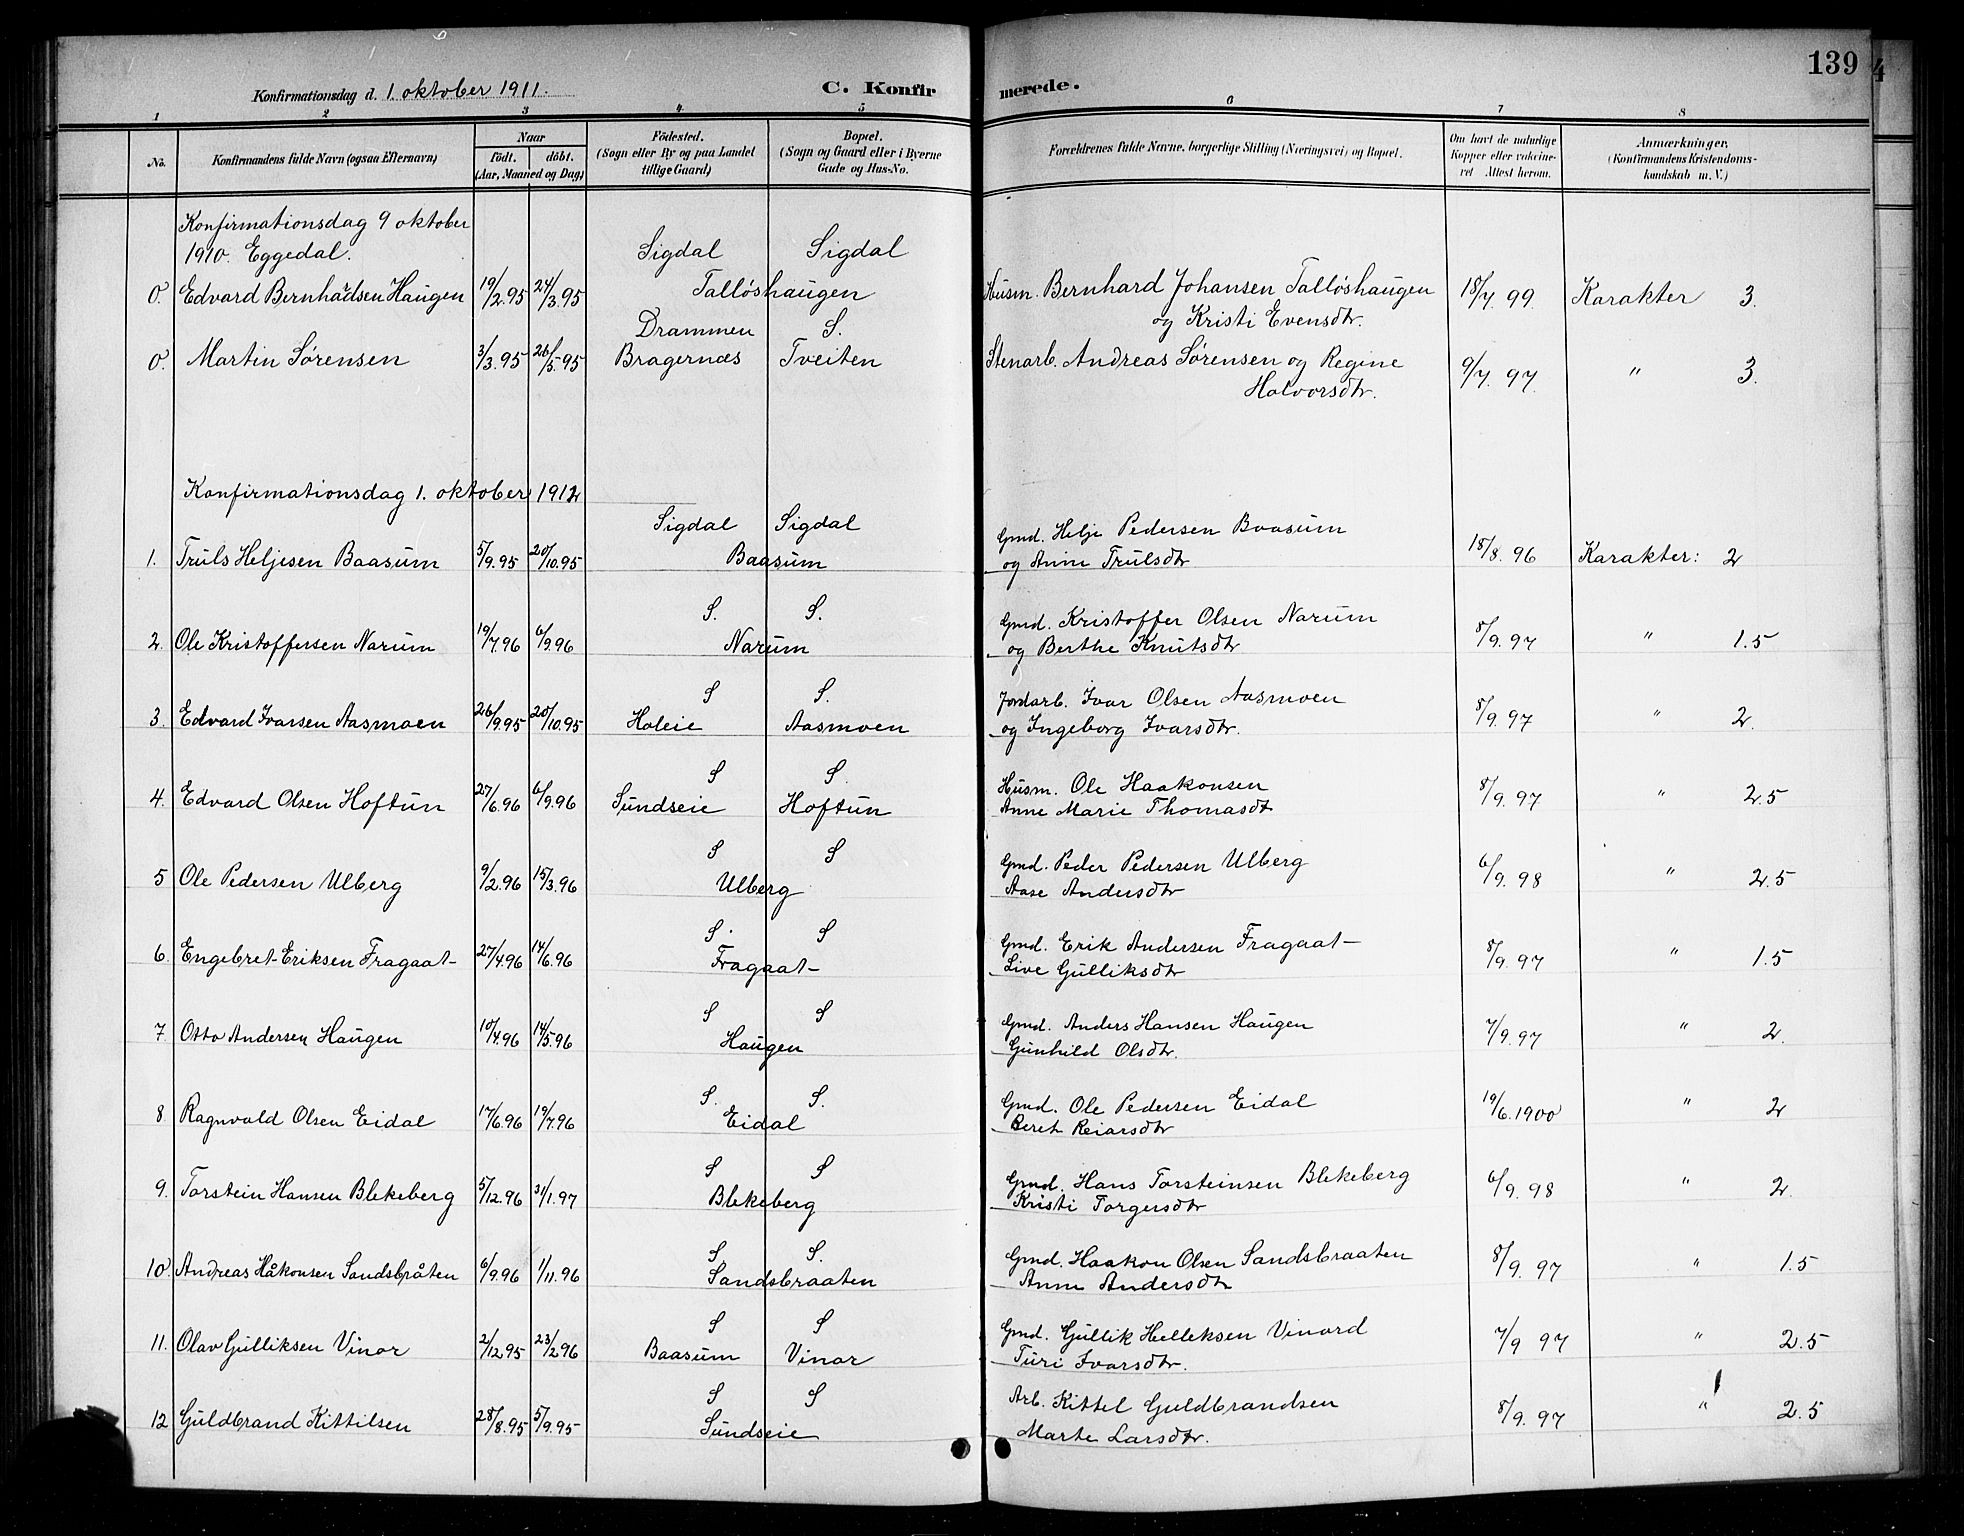 139
Konfirmationsdag d. 1. oktober 1911.
C. Konfirmerede.
1 2 3 4 5 6 7 8
No. Konfirmandens fulde Navn (ogsaa Efternavn) Naar födt. döbt. (Aar, Maaned og Dag) Födested. (Sogn eller By og paa Landet tillige Gaard) Bopæl. (Sogn og Gaard eller i Byerne Gade og Hus-No. Forældrenes fulde Navne, borgerlige Stilling (Næringsvei) og Bopæl. Om havt de naturlige Kopper eller vakcineret Attest herom. Anmærkninger. (Konfirmandens Kristendomskundskab m. V.)
Konfirmationsdag 9 oktober
1910. Eggedal. Sigdal Sigdal
0. Edvard Bernhardsen Haugen 19/2.95 24/3.95 Tallöshaugen Husm. Bernhard Johansen Tallöshaugen 18/7 99. Karakter 3.
og Kristi Evensdtr.
Drammen S.
0. Martin Sørensen 3/3.95 26/5.95 Bragernæs Tveiten Stenarb. Andreas Sørensen og Regine 9/7. 97. " 3.
Halvorsdtr.
Konfirmationsdag 1. oktober 1912
Sigdal Sigdal Gmd. Helje Pedersen Baasum
1. Truls Heljesen Baasum 5/9.95 20/10.95 Baasum og Anne Trulsdtr 18/8. 96 Karakter: 2
S. S. Gmd. Kristoffer Olsen Narum
2. Ole Kristoffersen Narum 19/7.96 6/9.96 Narum og Berthe Knutsdtr 8/9. 97 " 1.5
S S. Jordarb. Ivar Olsen Aasmoen
3. Edvard Ivarsen Aasmoen 26/9.95 20/10.95 Holeie Aasmoen og Ingeborg Ivarsdtr. 8/9. 97 " 2.
S S. Husm. Ole Haakonsen
4. Edvard Olsen Hoftun 27/6.96 6/9.96 Sundseie Hoftun Anne Marie Thomasdt 8/9. 97 " 2.5
S S Gmd. Peder Pedersen Ulberg
5 Ole Pedersen Ulberg 9/2.96 15/3.96 Ulberg Aase Andersdtr 6/9. 98 " 2.5
S. S Gmd. Erik Andersen Fragaat
6. Engebret Eriksen Fragaat 27/4.96 14/6.96 Fragaat Live Gulliksdtr 8/9. 97 " 1.5
S S Gmd. Anders Hansen Haugen
7 Otto Andersen Haugen 10/4.96 14/5.96 Haugen Gunhild Olsdtr. 7/9. 97 " 2.
S. S. Gmd. Ole Pedersen Eidal
8 Ragnvald Olsen Eidal 17/6.96 19/7.96 Eidal Beret Reiarsdtr 19/6. 1900 " 2
S S Gmd. Hans Torsteinsen Blekeberg
9. Torstein Hansen Blekeberg 5/12.96 31/1.97 Blekeberg Kristi Torgersdtr 6/9. 98 " 2.
S S. Gmd. Haakon Olsen Sandsbraaten
10. Andreas Håkonsen Sandsbråten 6/9.96 1/11.96 Sandsbraaten Anne Andersdtr 8/9. 97 " 1.5
S S Gmd. Gullik Helleksen Vinord
11. Olav Gulliksen Vinor 2/12.95 23/2.96 Baasum Vinor Turi Ivarsdtr. 7/9 97 " 2.5
S S Arb. Kittel Guldbrandsen
12 Guldbrand Kittilsen 28/8.95 5/9.95 Sundseie Marte Larsdtr. 8/9. 97 " 2.5